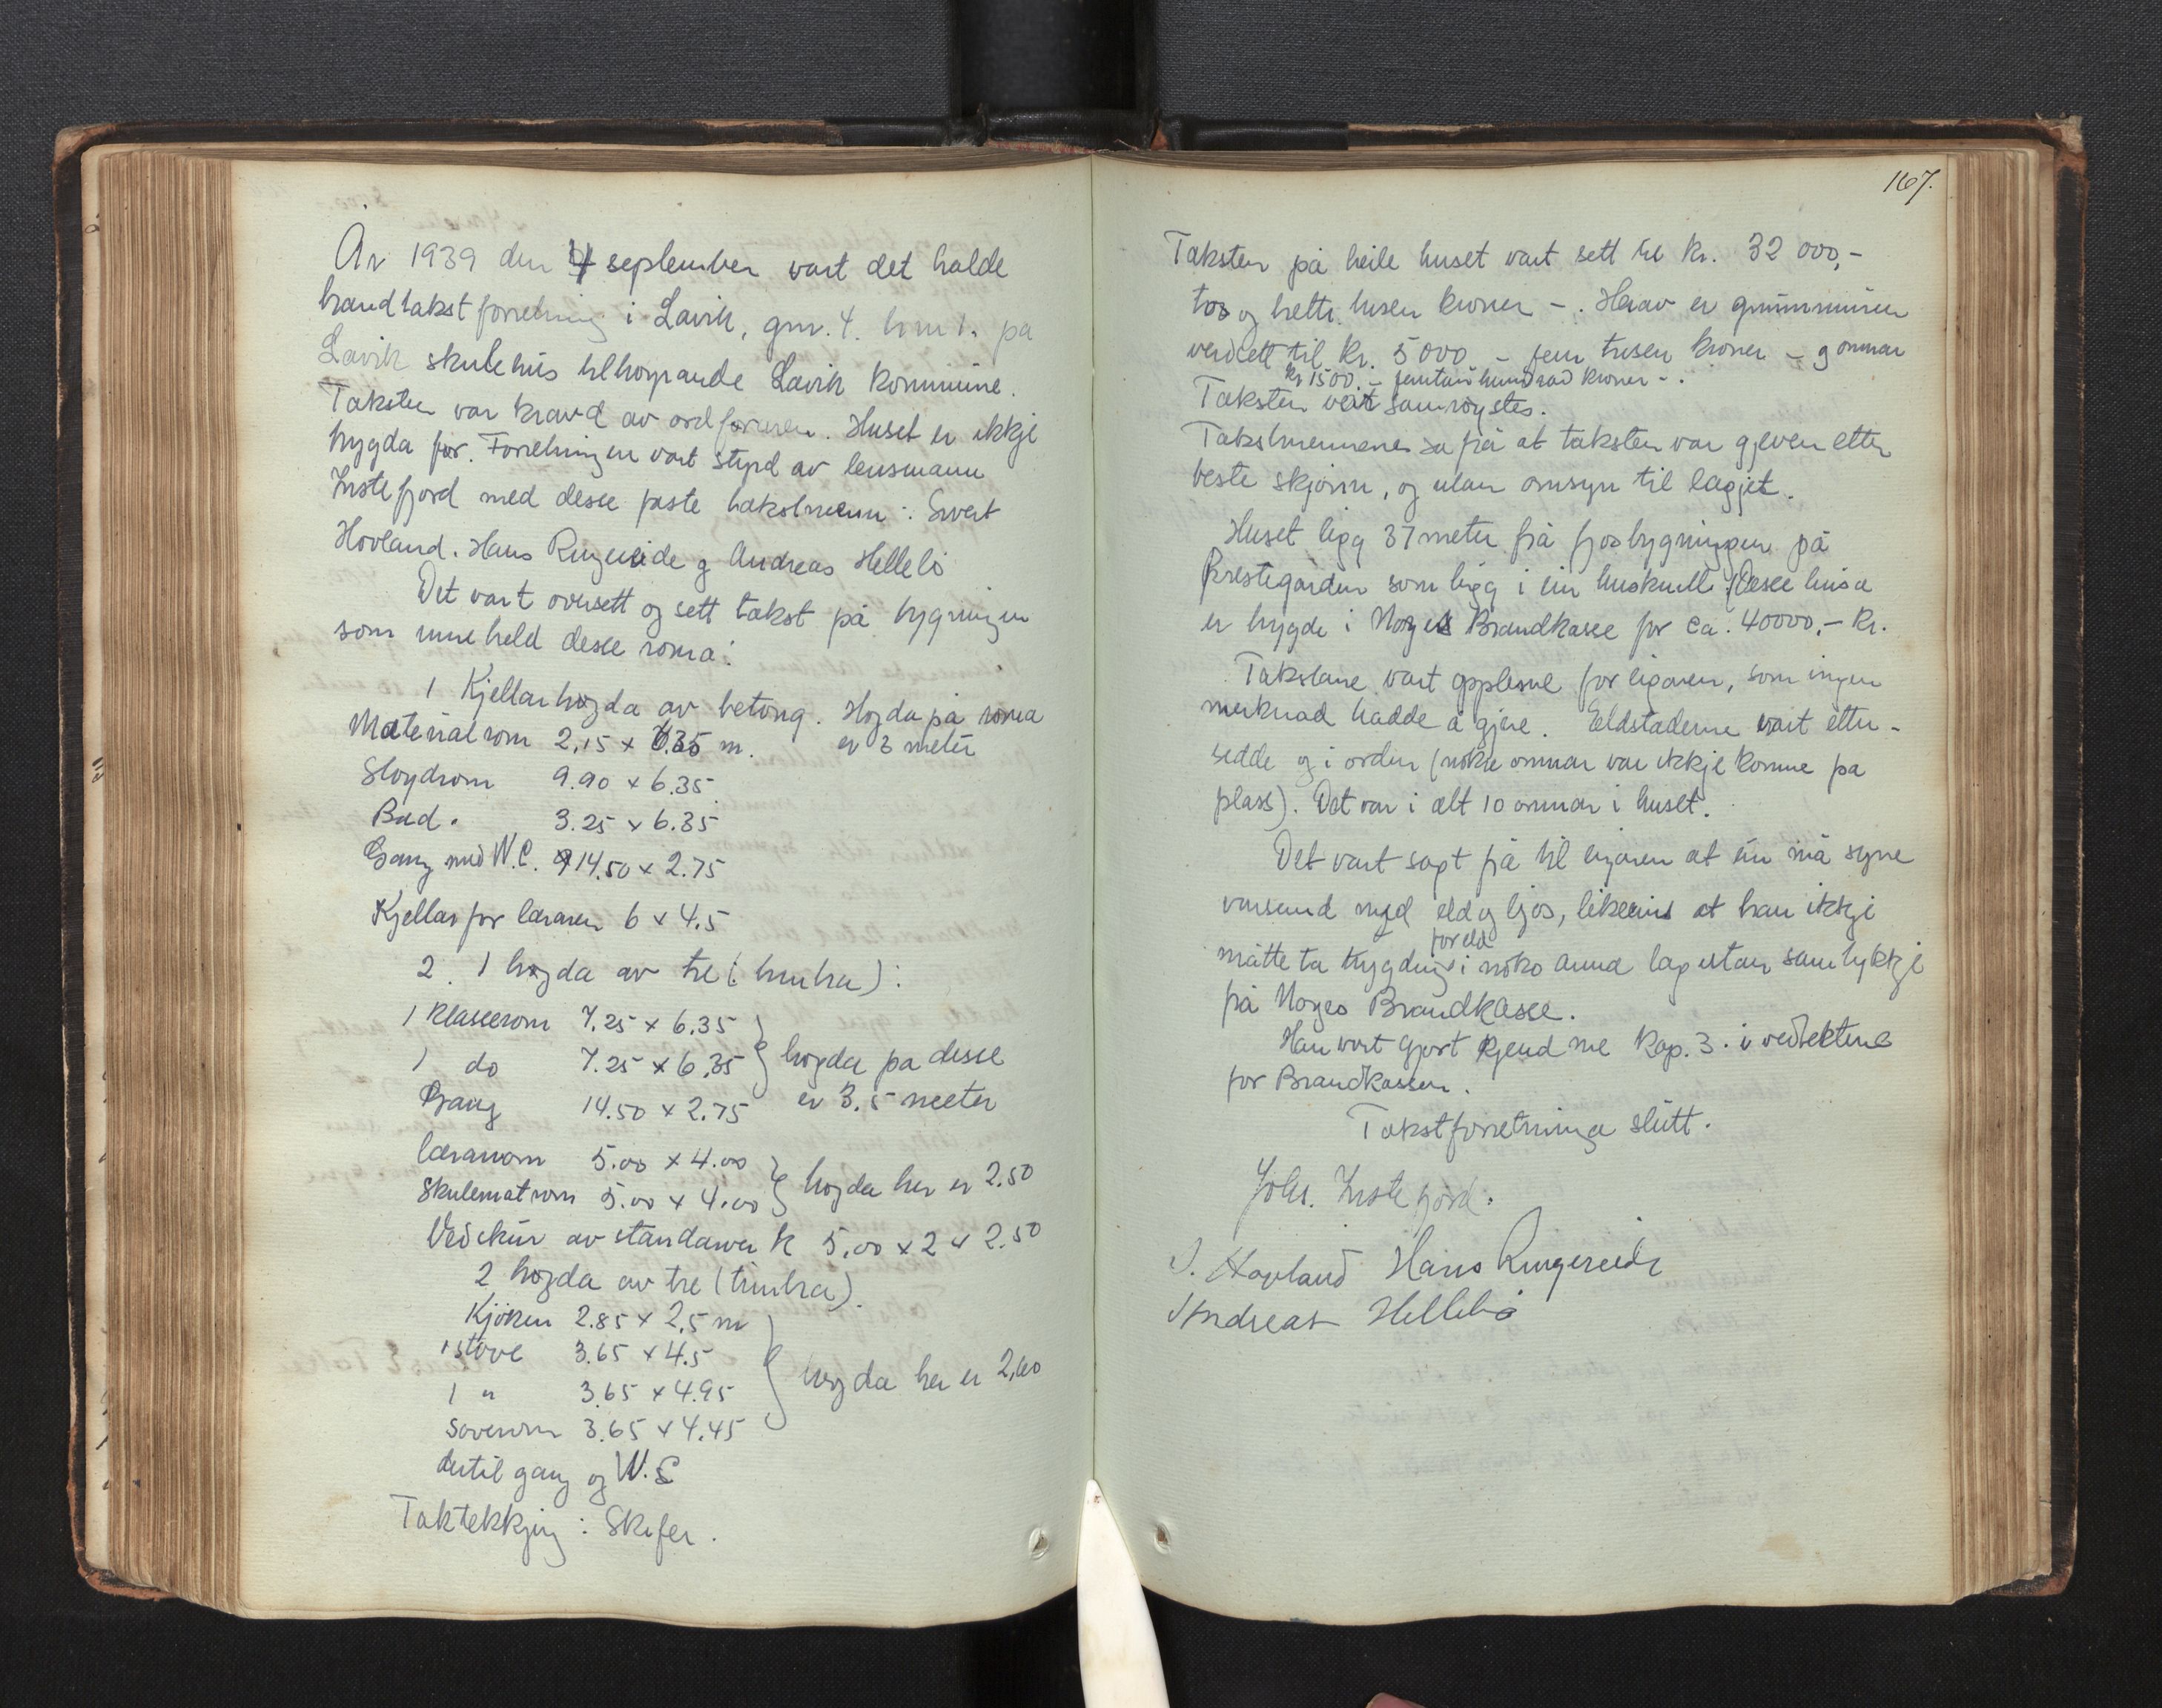 År 1939 den 4 september vart det halde
brandtakstforretning i Lavik, gnr. 4. bnr 1. på
Lavik skulehus tilhoyrande Lavik kommune.
Taksten var kravd av ordforaren. Huset er ikkje
trygda før. Forretningen vart styrd av lensmann
Instefjord med desse faste takstmenn: Sivert
Hovland. Hans Ringereide og Andreas Hellebø
Det vart oversett og sett takst på bygningen
som inneheld desse roma:
1 Kjellarhøgda av betong. Høgda på roma
Materialrom 2,15 x 6.35 m. er 3 meter
Sløydrom 9.90 x 6.35.
Bad. 3.25 x 6.35
Gang med W.C. 14.50 x 2.75
Kjellar for læraren 6 x 4.5
2. 1 høgda av tre (timbra):
1 Klasserom 7.25 x 6.35
1 do 7.25 x 6.35 } høgda på desse
Gang 14.50 x 2.75 er 3.5 meter
lærarrom 5.00 x 4.00
Skulematrom 5.00 x 4.00 } høgda her er 2.50
Vedskur av standarverk 5.00 x 2 x 2.50
2 høgda av tre (timbra).
Kjøken 2.85 x 2.5 m
1 stove 3.65 x 4.5
1 " 3.65 x 4.95 } høgda her er 2,60
Soverom 3.65 x 4.45
dertil gang og W.C
Taktekkjing: Skifer.
167.
Taksten på heile huset vart sett til kr. 32 000,-
to og tretti tusen kroner -. Herav er grunnmuren
verdsett til kr. 5000 - fem tusen kroner - g omnar
kr 1500. - femtan hundrad kroner -.
Taksten vart samrøystes.
Takstmennene sa frå at taksten var gjeven etter
beste skjønn, og utan omsyn til lagjet.
Huset ligg 37 meter frå fjosbygningen på
prestegarden som ligg i ein husknull. (Desse husa
er trygde i Norges Brandkasse for ca. 40000,- kr.
Takstane vart opplesne for eigaren, som ingen
merknad hadde å gjere. Eldstaderne vart etter-
sedde og i orden (nokre omnar var ikkje komne på
plass). Det var i alt 10 omnar i huset.
Det vart sagt frå til eigaren at ein må syne
varsemd med eld og ljos, likeeins at han ikkje
for eld
måtte ta trygding i noko anna lag utan samtykkje
frå Norges Brandkasse.
Han vart gjort kjend me kap. 3. i vedtektene
for Brandkassen.
Takstforretninga slutt.
Johs. Instefjord.
S. Hovland Hans Ringereide
Andreas Hellebø